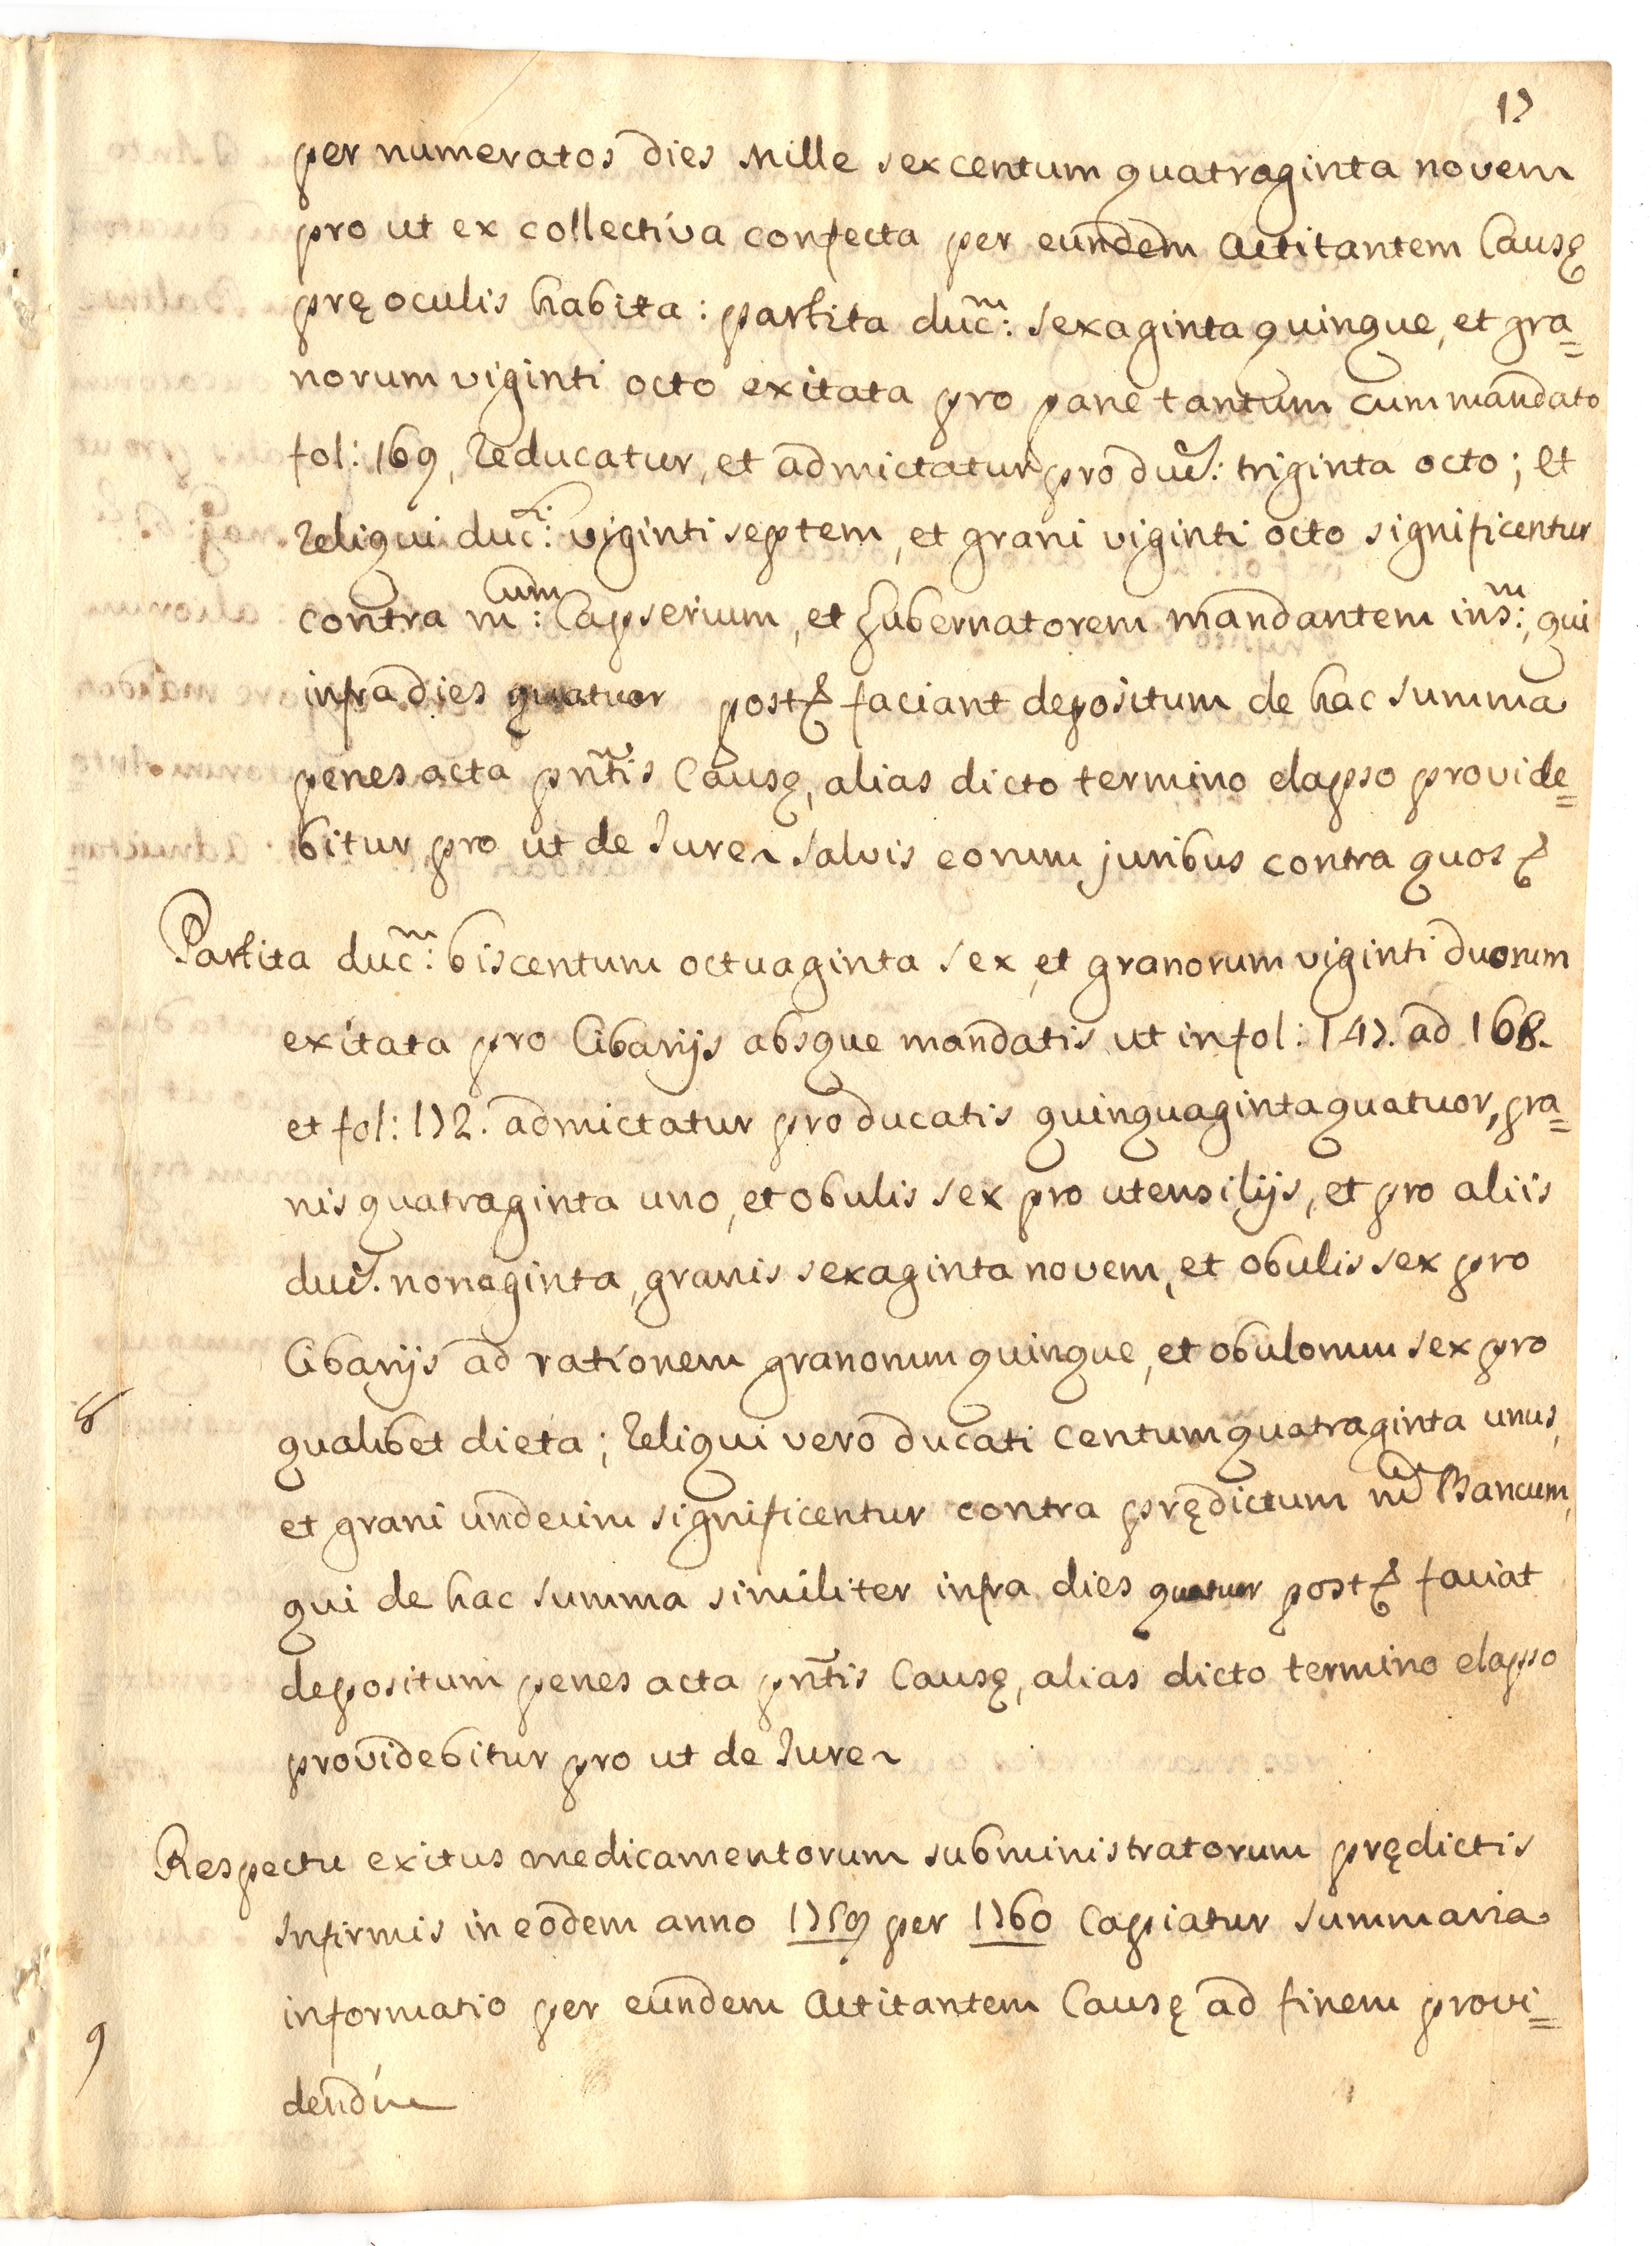 17
per numeratos dies Mille sexcentum quatraginta novem
pro ut ex collectiva confecta per eundem Actitantem Causę
prę oculis habita: partita duc.m: sexaginta quinque, et gra=
norum viginti octo exitata pro pane tantum cum mandato
fol: 169, reducatur, et admictatur pro duc.: triginta octo; et
reliqui duc.i: viginti septem, et grani viginti octo significentur
contra m.cum: Capserium, et Gubernatorem mandantem ins.m:, qui
infra dies quatuor post &c faciant depositum de hac summa
penes acta pñtis Causę, alias dicto termino elapso provide=
bitur pro ut de Jure salvis eorum juribus contra quos &c
Partita duc.m: biscentum octuaginta sex, et granorum viginti duorum
exitata pro Cibarijs absque mandatis ut in fol: 147. ad 168.
et fol: 172. admictatur pro ducatis quinquaginta quatuor, gra=
nis quatraginta uno, et obulis sex pro utensilijs, et pro aliis
duc. nonaginta, granis sexaginta novem, et obulis sex pro
Cibarijs ad rationem granorum quinque, et obulorum sex pro
8 qualibet dieta; reliqui vero ducati centum quatraginta unus,
et grani undecim significentur contra prędictum Bancum,
qui de hac summa similiter infra dies quatuor post &c faciat
depositum penes acta pñtis Causę, alias dicto termino elapso
providebitur pro ut de Jure
Respectu exitus medicamentorum subministratorum prędictis
Infirmis in eodem anno 1759 per 1760 Capiatur summaria
informatio per eundem Actitantem Causę ad finem provi=
9 dendi